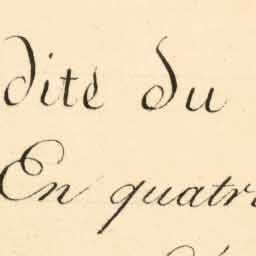 dité du
En quatr